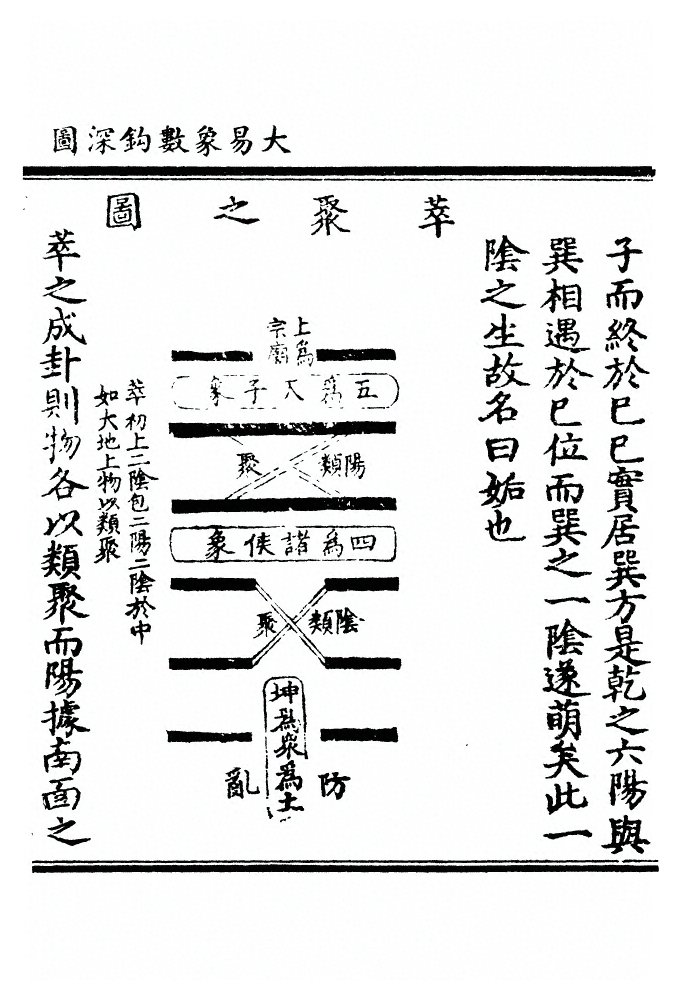 大易象數鈎深圖
子而終於巳巳實居巽方是乾之六陽與
巽相遇於巳位而巽之一陰遂萌矣此一
陰之生故名曰姤也
萃聚之圖
上為
宗廟
五為天子象
陽類聚
四為諸侯象
陰類聚
坤為衆為土
防亂
萃初上二陰包二陽二陰於中
如大地上物以類聚
萃之成卦則物各以類聚而陽據南面之